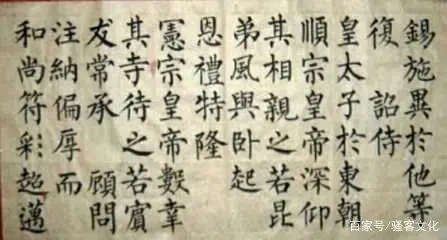 錫施異於他等
復 詔侍
皇太子於東朝
順宗皇帝深仰
其相親之若昆
弟風與卧起
恩禮特隆
憲宗皇帝數幸
其寺待之若賓
友常承 顧問
注納偏厚而
和尚符彩超邁
百家号/骚客文化